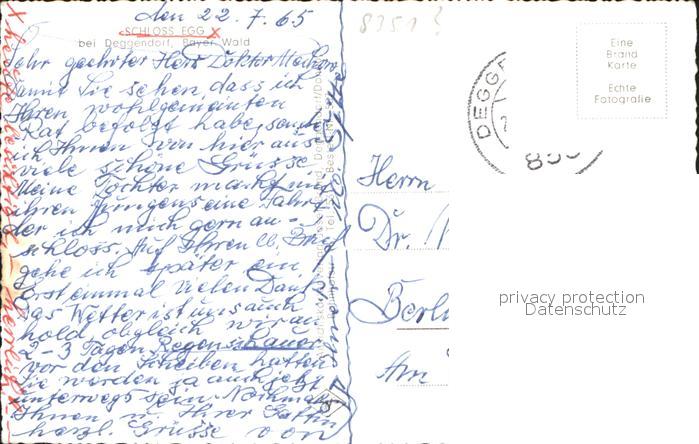 den 22.7.65
8351?
SCHLOSS EGG X
bei Deggendorf, Bayer. Wald
Sehr geehrter Herr Doktor
Damit Sie sehen, dass ich
Ihren wohlgemeinten
Rat befolgt habe, sende
ich Ihnen von hier aus
viele schöne Grüsse.
Meine Tochter macht mit
ihren Jungens eine Fahrt
der ich mich gern an-
schloss. Auf Ihren lb. Brief
gehe ich später ein.
Erst einmal vielen Dank
Das Wetter ist uns auch
hold obgleich wir an
2-3 Tagen Regenschauer
vor den Scheiben hatten
Sie werden ja auch jetzt
unterwegs sein. Nochmals
Ihnen u. Ihrer Gattin
herzl. Grüsse von
Eine
Brand
Karte
Echte
Fotografie
DEGGE
Herrn
Dr.
Berli
Am
privacy protection
Datenschutz